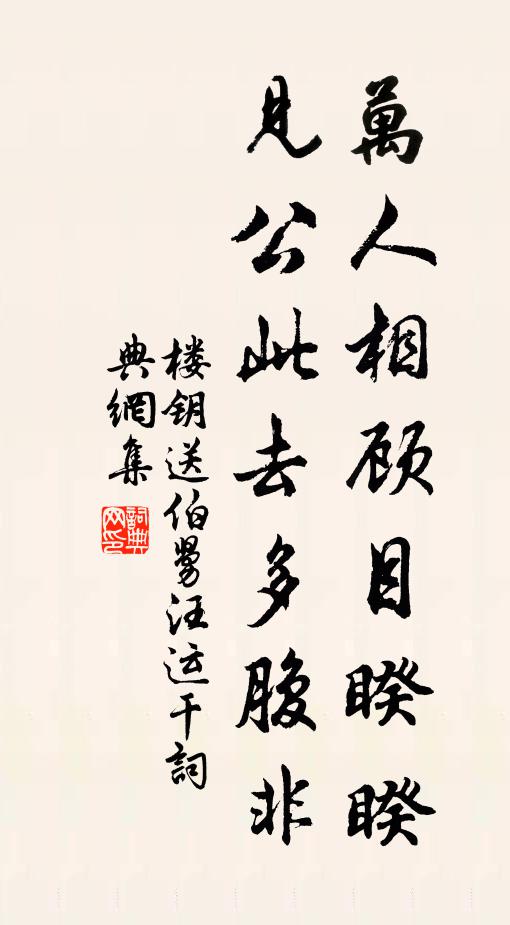 萬人相顾目睽睽
見公此去多腹非
楼钥送伯勞汪运干詞
典網集
詞典
网印